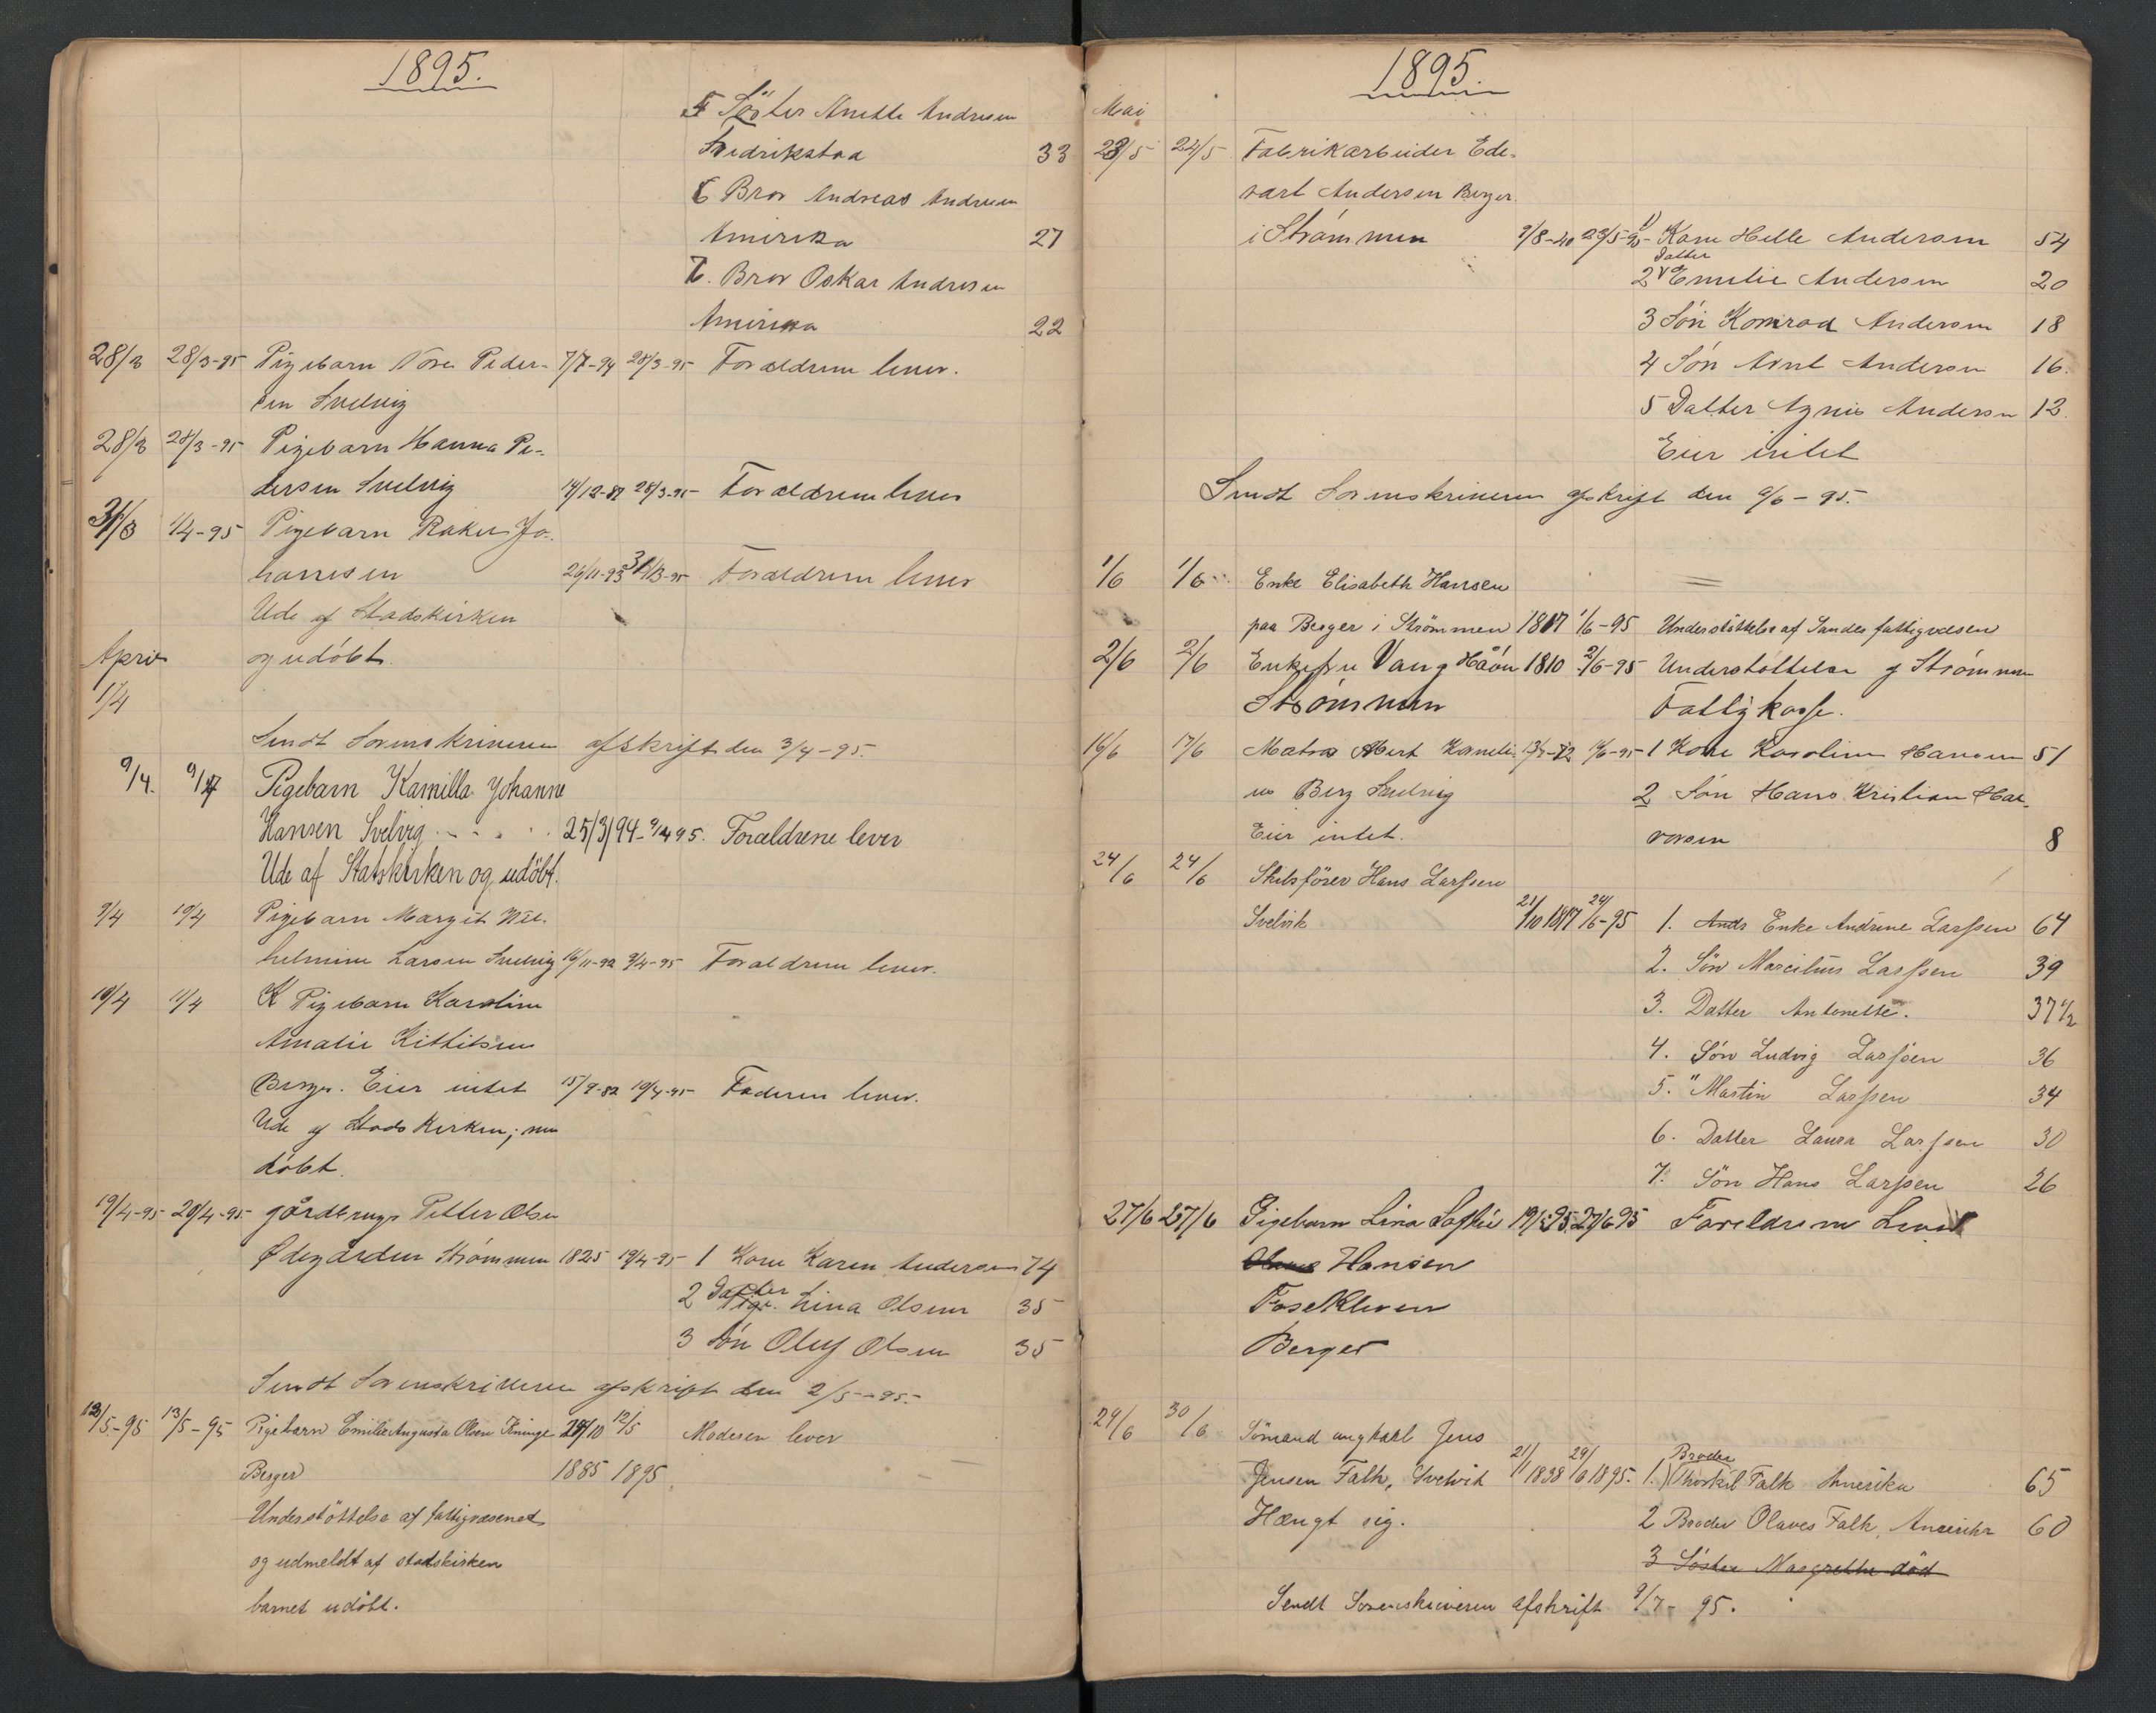 1895.
5 Söster Anette Andresen
Fredrikstad 33
6 Bror Andreas Andresen
Amerika 27
7. Bror Oskar Andresen
Amerika 22
28/3 28/3-95 Pigebarn Tora Peder- 7/7-94 28/3-95 Forældrene lever.
sen Svelvig
28/3 28/3-95 Pigebarn Hanna Pe-
dersen Svelvig 14/12-87 28/3-95 Forældrene lever
31/3 1/4-95 Pigebarn Rakel Jo-
hannesen 26/11-93 31/3-95 Forældrene lever
Ude af Stadskirken
April og udöbt.
1/4
Sendt Sorenskriveren afskrift den 3/4-95.
9/4. 9/4 Pigebarn Kamilla Johanne
Hansen Svelvig 25/3/94 - 9/4 95. Forældrene lever
Ude af Statskirken og udöbt.
9/4 10/4 Pigebarn Margit Wil-
helmine Larsen Svelvig 16/11-92 9/4-95 Forældrene lever.
10/4 11/4 Pigebarn Karoline
Amalie Kittilsen
Berger. Eier intet 15/9-82 10/4-95 Faderen lever.
Ude af Stadskirken; men
döbt.
19/4-95 20/4-95 gårdbruger Petter Olsen
Ødegården Strømmen 1825 19/4-95 1 Kone Karen Andersen 74
2 Datter Lina Olsen 35
3 Sön Oluf Olsen 35
Sendt Sorenskriveren afskrift den 2/5-95.
12/5-95 13/5-95 Pigebarn Emilie Augusta Olsen 29/10 12/5 Moderen lever
Berger 1885 1895
Understöttelse af fattigvæsenet
og udmeldt af stadskirken
barnet udöbt.
1895.
Mai
23/5 24/5 Fabrikarbeider Ede-
vart Andersen Berger
i Strömmen 9/8-40 23/5-95 1) Kone Helle Andersen 54
2 Datter Emilie Andersen 20
3 Sön Konrad Andersen 18
4 Sön Arnt Andersen 16.
5 Datter Agnis Andersen 12.
Eier intet
Sendt Sorenskriveren afskrift den 6/6-95.
1/6 1/6 Enke Elisabeth Hansen
paa Berger i Strömmen 1817 1/6-95 Understöttelse af Sandes fattigvæsen
2/6 2/6 Enkefru Vang Håön 1810 2/6-95 Understöttelse af Strömmen
Strömmen Fattigkasse.
16/6 17/6 Matros 16/6-95 1 Kone Karoline Hansen 51
Berg Svelvig 2 Sön Hans Kristian Hal-
Eier intet. vorsen 8
24/6 24/6 Skibsförer Hans Larssen
Svelvik 21/10 1817 24/6-95 1. Enke Andrine Larssen 64
2. Sön Marcilius Larssen 39
3. Datter Antonette. 37 1/2
4. Sön Ludvig Larssen 36
5. " Martin Larssen 34
6. Datter Laura Larssen 30
7. Sön Hans Larssen 26
27/6 27/6 Pigebarn Lina Sofhie 19/5 95 27/6 95 Foreldrene Lever
Hansen
Fosekleven
Berger
29/6 30/6 Sömand ungkarl Jens
Jensen Falk, Svelvik 21/11 1838 29/6 1895. 1.) Broder Thorkil Falk Amerika 65
Hængt sig. 2 Broder Olaves Falk, Amerika 60
3 Söster Margrethe död
Sendt Sorenskriveren afskrift 9/7-95.